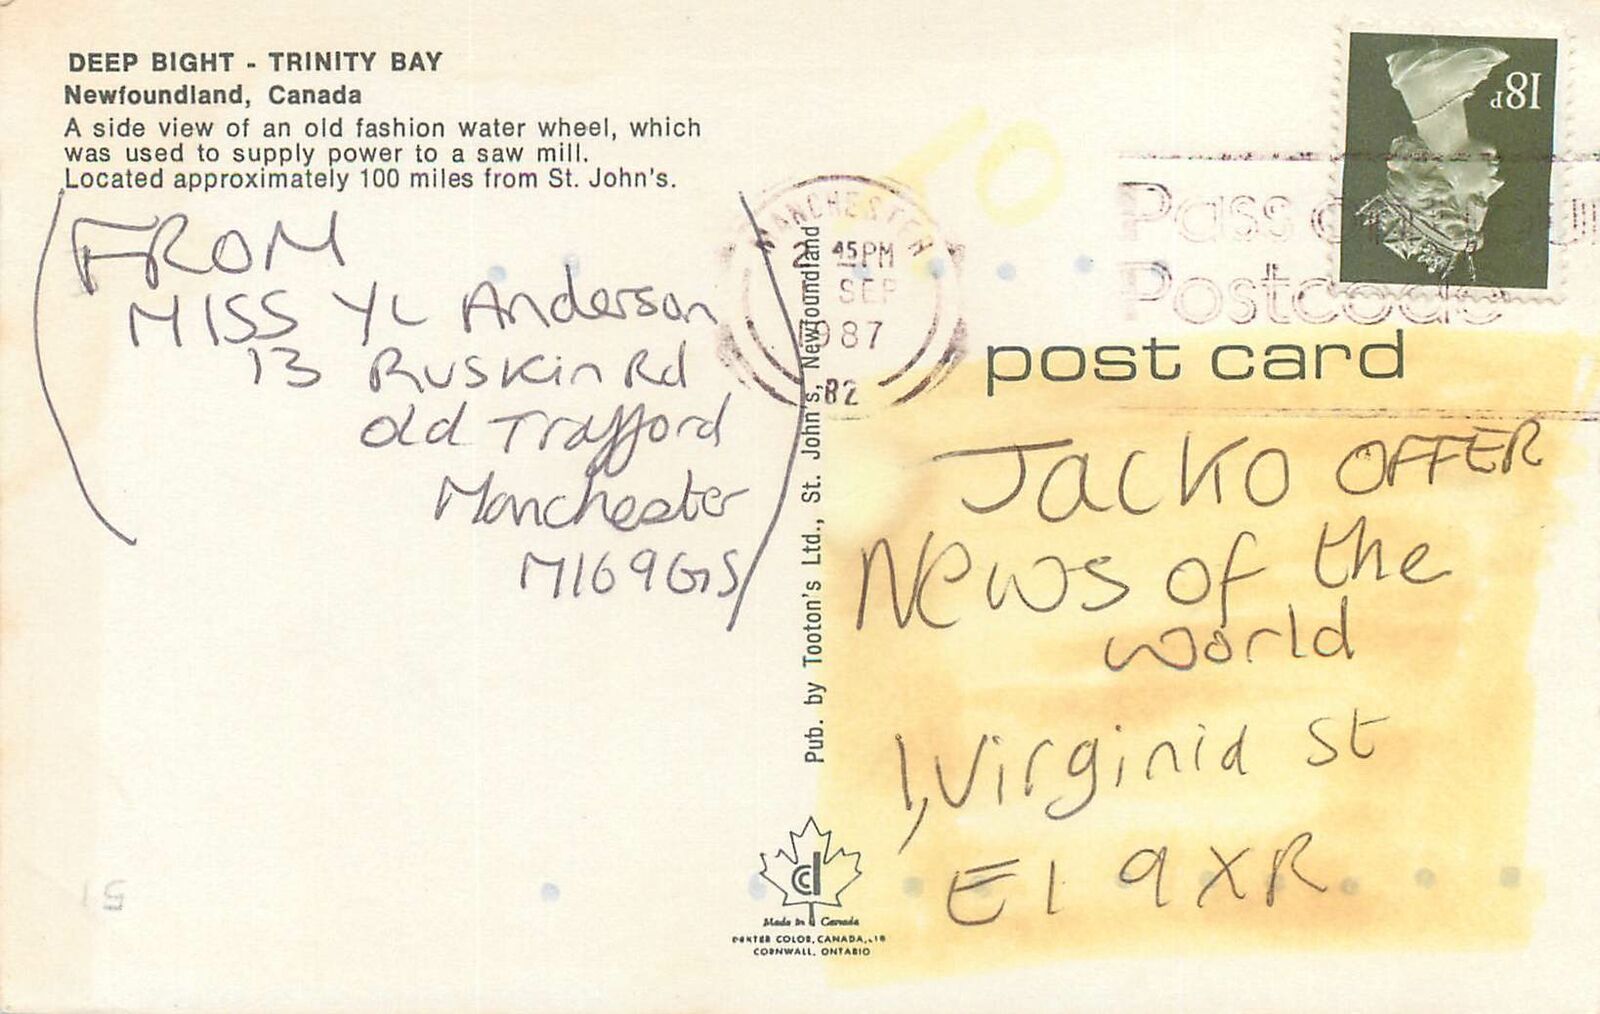 DEEP BIGHT - TRINITY BAY
Newfoundland, Canada
A side view of an old fashion water wheel, which
was used to supply power to a saw mill.
Located approximately 100 miles from St. John's.
FROM
MISS YL Anderson
13 Ruskin Rd
Old Trafford
Manchester
M169GS
51
Pub. by Tooton's Ltd., St. John's, Newfoundland
MANCHESTER
2 45PM
SEP
1987
82
TO
18P
Pass on your
Postcode
post card
Jacko OFFER
News of the
world
1, Virginia St
E1 9XR
cd
Made in Canada
DEXTER COLOR, CANADA, LTD
CORNWALL, ONTARIO